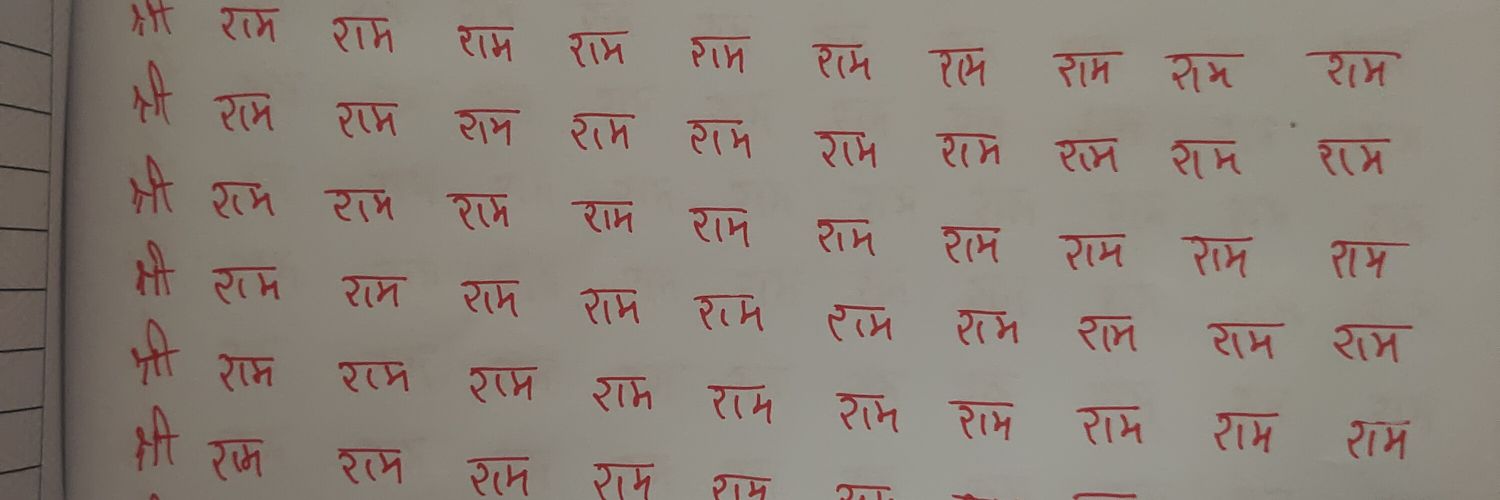 श्री राम राम राम राम राम राम राम राम राम राम
श्री राम राम राम राम राम राम राम राम राम राम
श्री राम राम राम राम राम राम राम राम राम राम
श्री राम राम राम राम राम राम राम राम राम राम
श्री राम राम राम राम राम राम राम राम राम राम
श्री राम राम राम राम राम